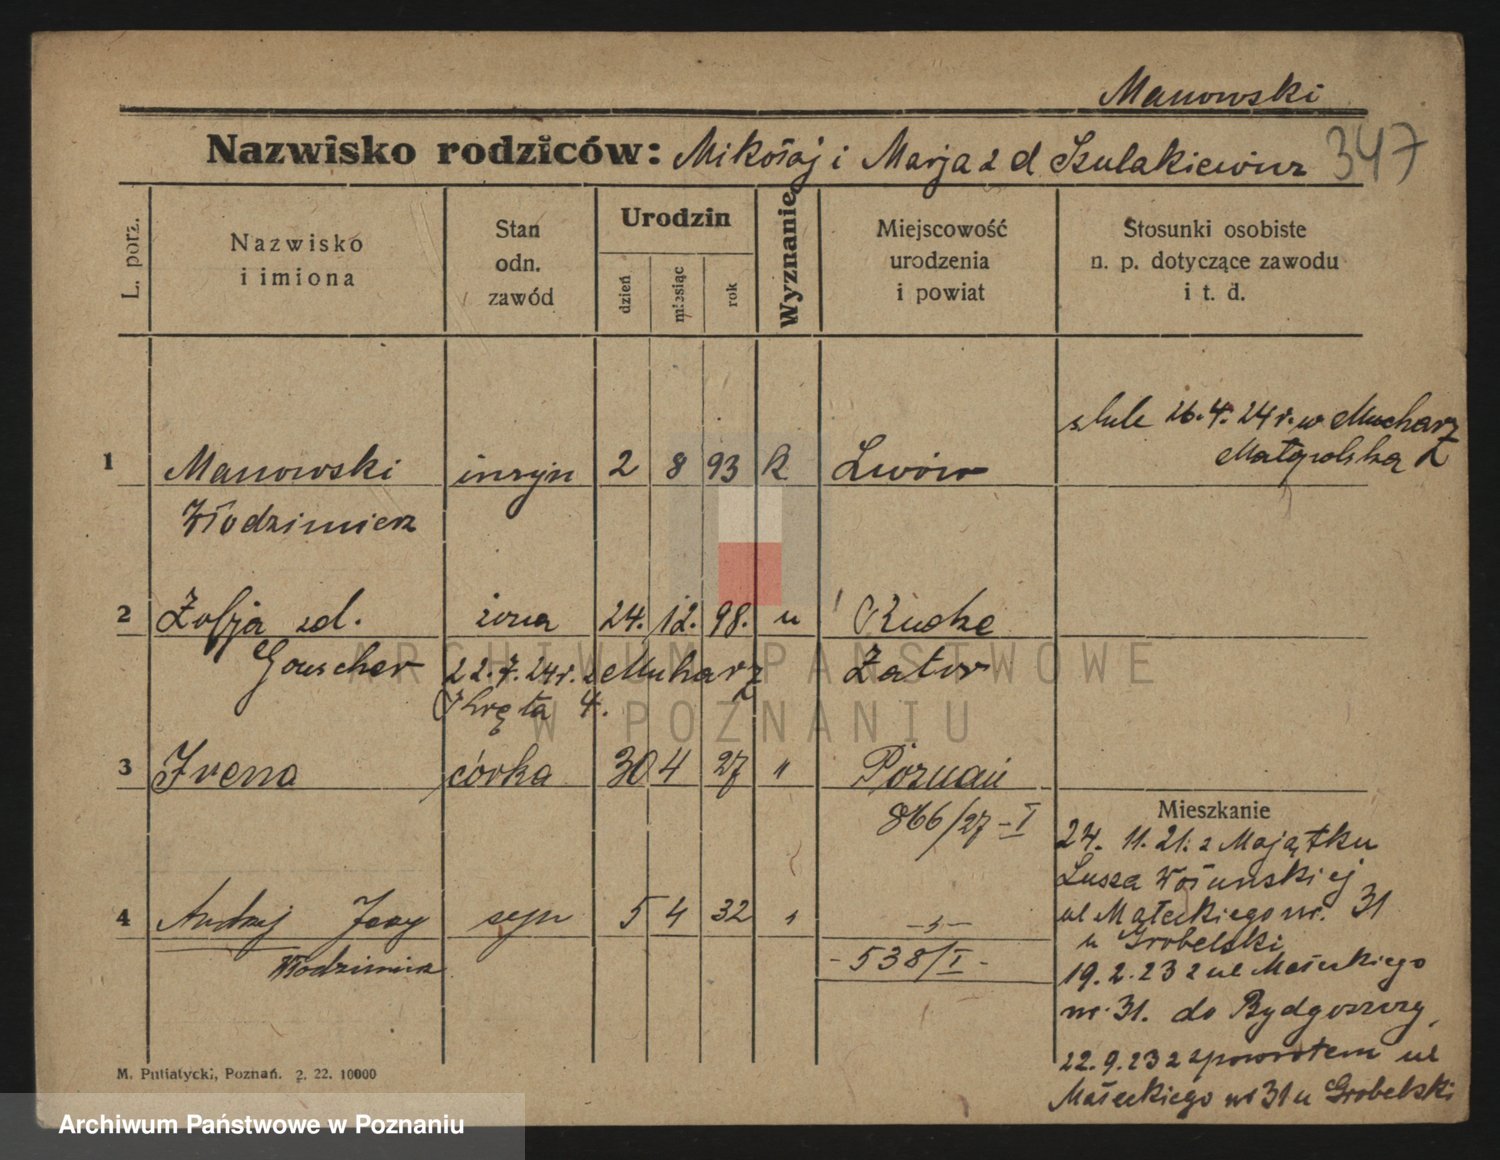 Manowski
Nazwisko rodziców: Mikołaj i Marja z d Szulakiewicz 347
L. porz.
Nazwisko i imiona
Stan odn. zawód
Urodzin
dzień miesiąc rok
Wyznanie
Miejscowość urodzenia i powiat
Stosunki osobiste n. p. dotyczące zawodu i t. d.
ślub 26.4.24 r. w Mucharz
Małopolska
1 Manowski inżyn 2 8 93 k Lwów
Włodzimierz
2 Zofja zd. żona 24. 12. 98. u
Gouscher 22.7.24 r. z Muharz Zator
Kręta 4.
3 Irena córka 30 4 27 " Poznań
866/27-I
Mieszkanie
24. 11. 21. z Majątku
ul Małeckiego nr. 31
u Grobelski
4 Andrzej Jerzy syn 5 4 32 "
Włodzimierz - 538/I -
19.2.23 z ul Małeckiego
nr. 31. do Bydgoszczy,
22.9.23 z zpowrotem ul
Małeckiego nr 31 u Grobelski
M. Putiatycki, Poznań. 2. 22. 10000
ARCHIWUM PAŃSTWOWE
W POZNANIU
Archiwum Państwowe w Poznaniu